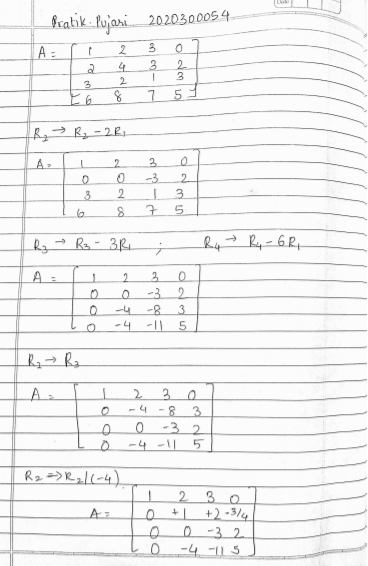 Pratik Pujari 2020300054
A = [ 1 2 3 0
2 4 3 2
3 2 1 3
6 8 7 5 ]
R₂ → R₂ - 2R₁
A = [ 1 2 3 0
0 0 -3 2
3 2 1 3
6 8 7 5 ]
R₃ → R₃ - 3R₁ ; R₄ → R₄ - 6R₁
A = [ 1 2 3 0
0 0 -3 2
0 -4 -8 3
0 -4 -11 5 ]
R₂ → R₃
A = [ 1 2 3 0
0 -4 -8 3
0 0 -3 2
0 -4 -11 5 ]
R₂ ⇒ R₂/(-4)
A = [ 1 2 3 0
0 +1 +2 -3/4
0 0 -3 2
0 -4 -11 5 ]